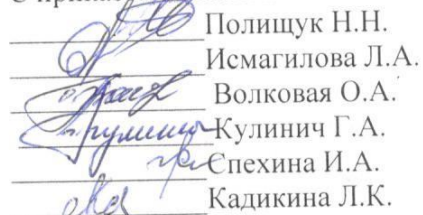 Полищук Н.Н.
Исмагилова Л.А.
Волковая О.А.
Кулинич Г.А.
Спехина И.А.
Кадикина Л.К.